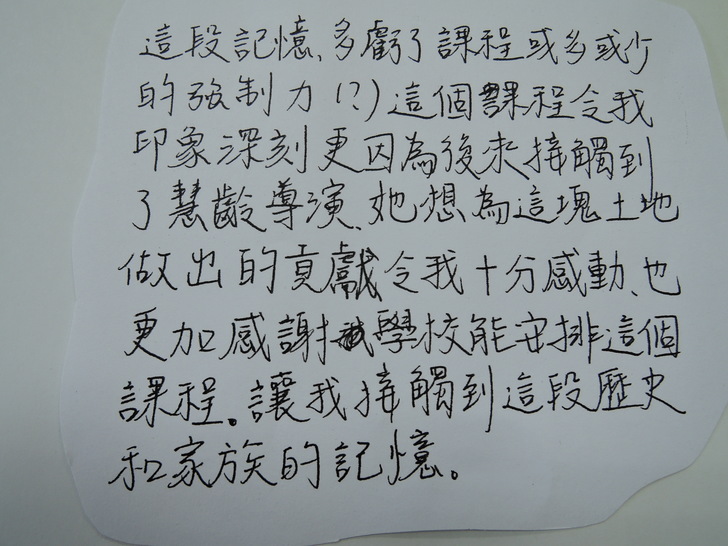 這段記憶、多虧了課程或多或少
的強制力(?)這個課程令我
印象深刻更因為後來接觸到
了慧齡導演、她想為這塊土地
做出的貢獻令我十分感動、也
更加感謝學校能安排這個
課程。讓我接觸到這段歷史
和家族的記憶。